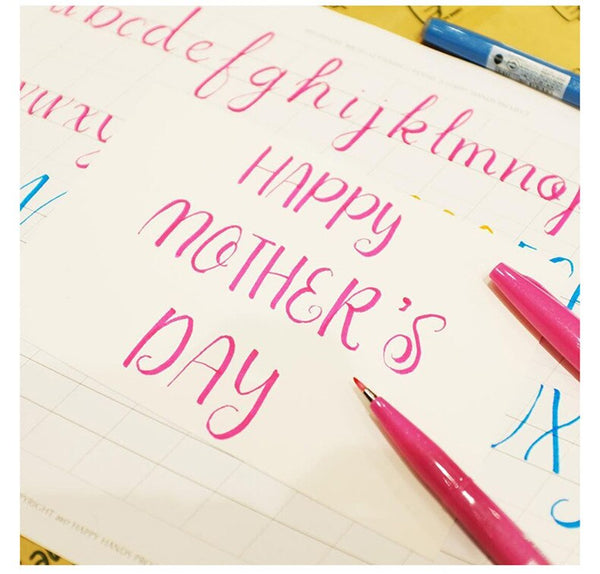 abcdefghijklmnop
HAPPY
MOTHER'S
DAY
COPYRIGHT 2017 HAPPY HANDS PROJECT